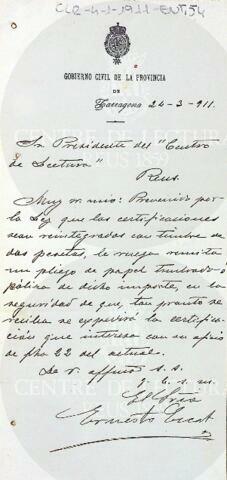 CLR-4-1-1911-ENT,54
GOBIERNO CIVIL DE LA PROVINCIA
DE
Tarragona 24-3-911.
Sr. Presidente del "Centro
de Lectura"
Reus.
Muy Sr. mio: Prevenido por
la Ley que las certificaciones
sean reintegradas con timbre de
dos pesetas, le ruego remita
un pliego de papel timbrado ó
póliza de dicho importe, en la
seguridad de que, tan pronto se
reciba se expedirá la certifica-
ción que interesa con su oficio
de fha 22 del actual.
De V. affmo s. s.
q. b. s. m.
El Srio
Ernesto
CENTRE DE LECTURA
REUS 1859